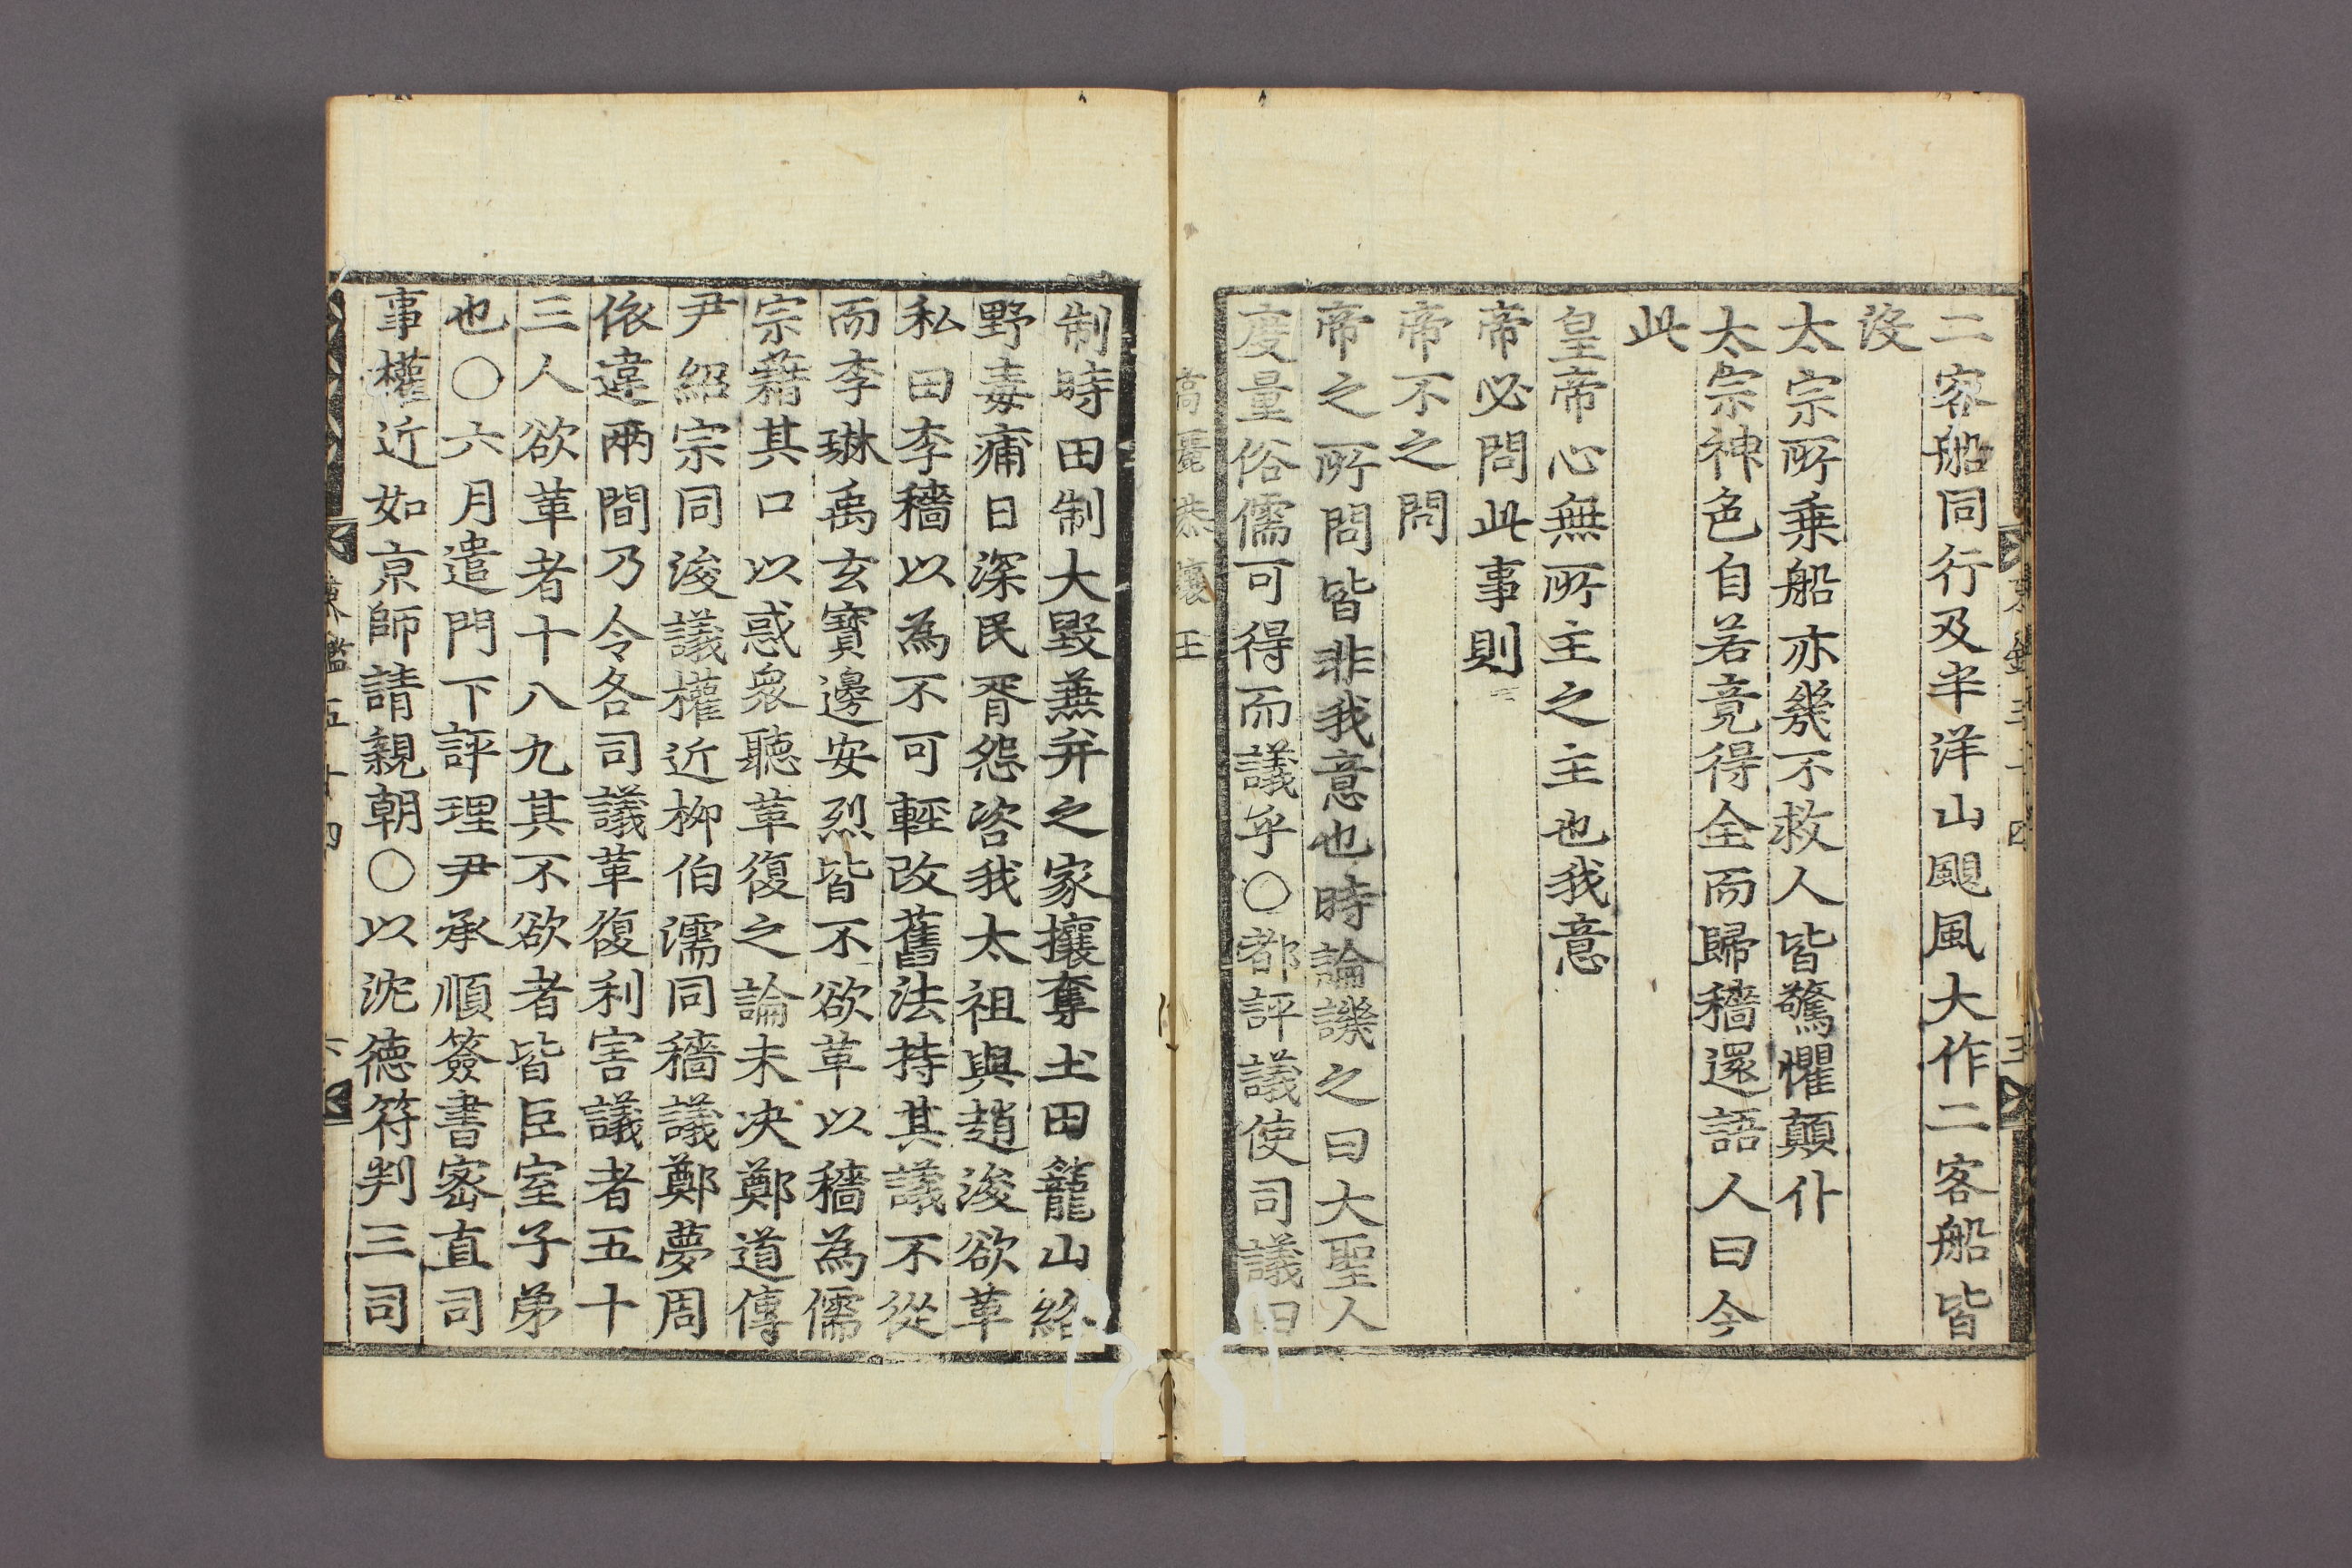 二客船同行及半洋山颶風大作二客船皆
沒
太宗所乗船亦幾不救人皆驚懼顛仆
太宗神色自若竟得全而歸穡還語人曰今
此
皇帝心無所主之主也我意
帝必問此事則
帝不之問
帝之所問皆非我意也時論譏之曰大聖人
度量俗儒可得而議乎○都評議使司議田
高麗恭讓王
制時田制大毀兼并之家攘奪土田籠山絡
野毒痡日深民胥怨咨我太祖與趙浚欲革
私田李穡以為不可輕改舊法持其議不從
而李琳禹玄寶邊安烈皆不欲革以穡為儒
宗藉其口以惑衆聽革復之論未决鄭道傳
尹紹宗同浚議權近柳伯濡同穡議鄭夢周
依違兩間乃令各司議革復利害議者五十
三人欲革者十八九其不欲者皆臣室子弟
也○六月遣門下評理尹承順簽書密直司
事權近如京師請親朝○以沈德符判三司